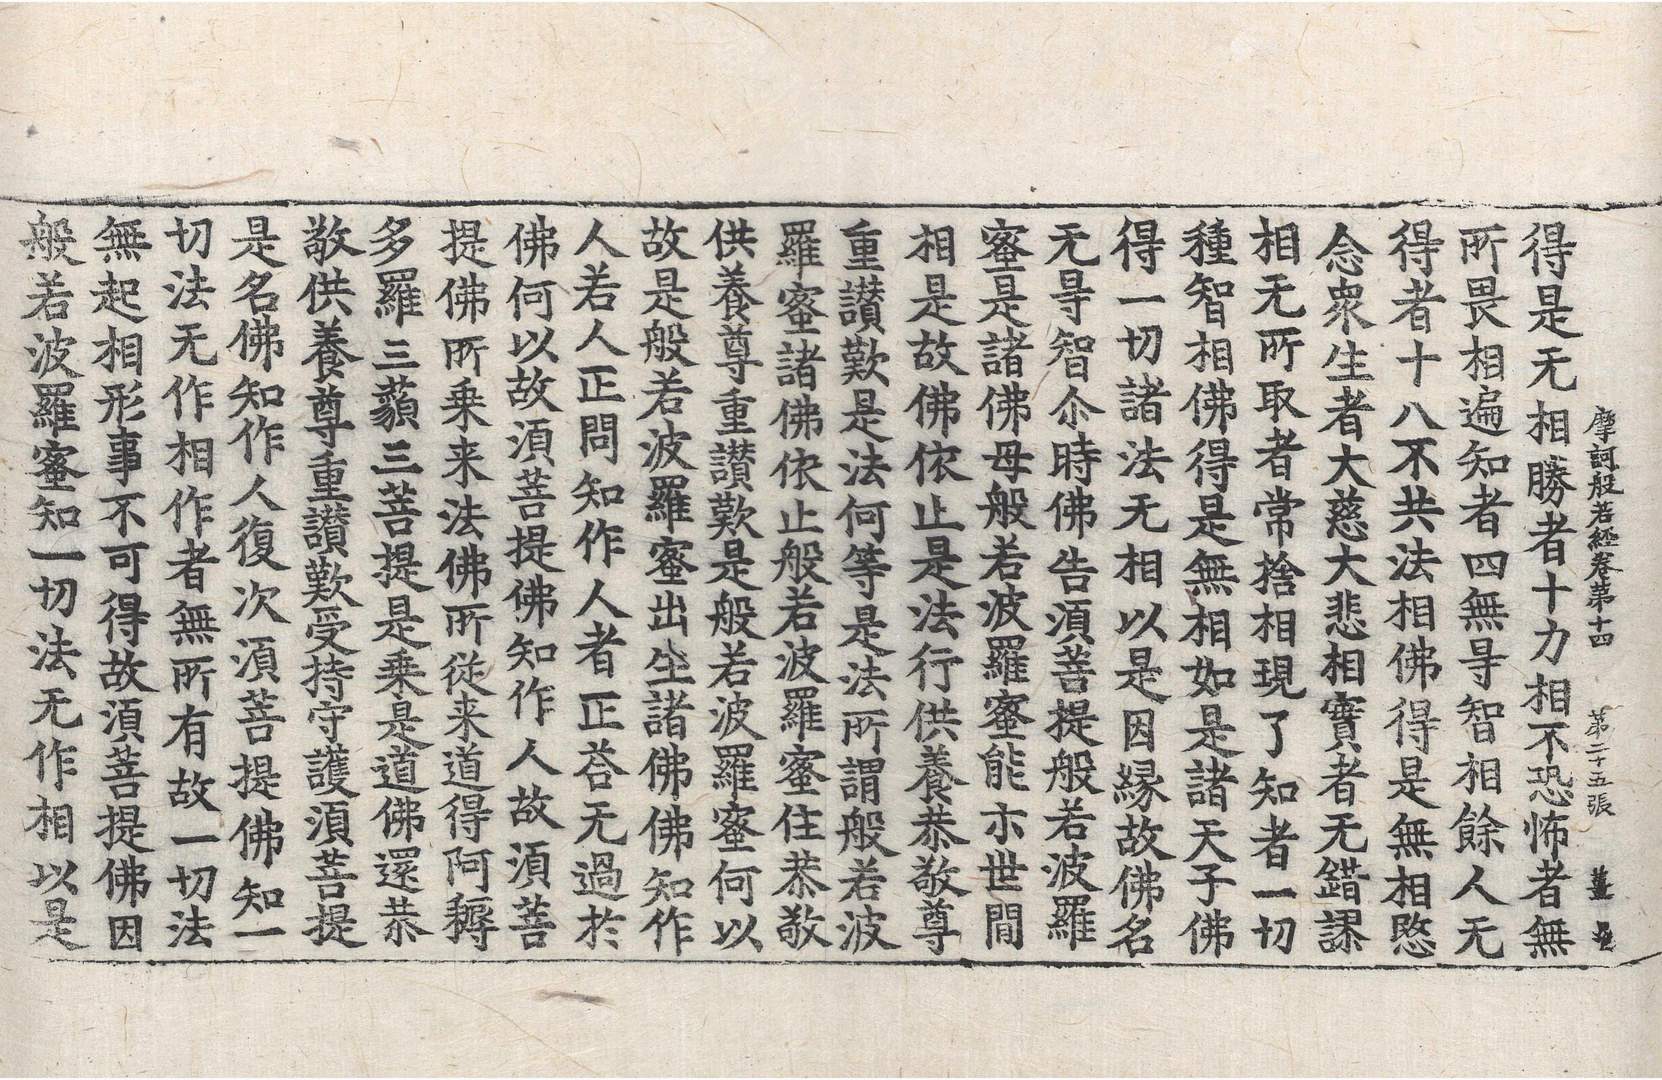 摩訶般若經卷第十四　第二十五張　薑
得是无相勝者十力相不恐怖者無
所畏相遍知者四無㝵智相餘人无
得者十八不共法相佛得是無相愍
念衆生者大慈大悲相實者无錯謬
相无所取者常捨相現了知者一切
種智相佛得是無相如是諸天子佛
得一切諸法无相以是因縁故佛名
无㝵智尒時佛告湏菩提般若波羅
蜜是諸佛母般若波羅蜜能示世間
相是故佛依止是法行供養恭敬尊
重讃歎是法何等是法所謂般若波
羅蜜諸佛依止般若波羅蜜住恭敬
供養尊重讃歎是般若波羅蜜何以
故是般若波羅蜜出生諸佛佛知作
人若人正問知作人者正荅无過於
佛何以故湏菩提佛知作人故湏菩
提佛所乗来法佛所從来道得阿耨
多羅三藐三菩提是乗是道佛還恭
敬供養尊重讃歎受持守護湏菩提
是名佛知作人復次湏菩提佛知一
切法无作相作者無所有故一切法
無起相形事不可得故湏菩提佛因
般若波羅蜜知一切法无作相以是